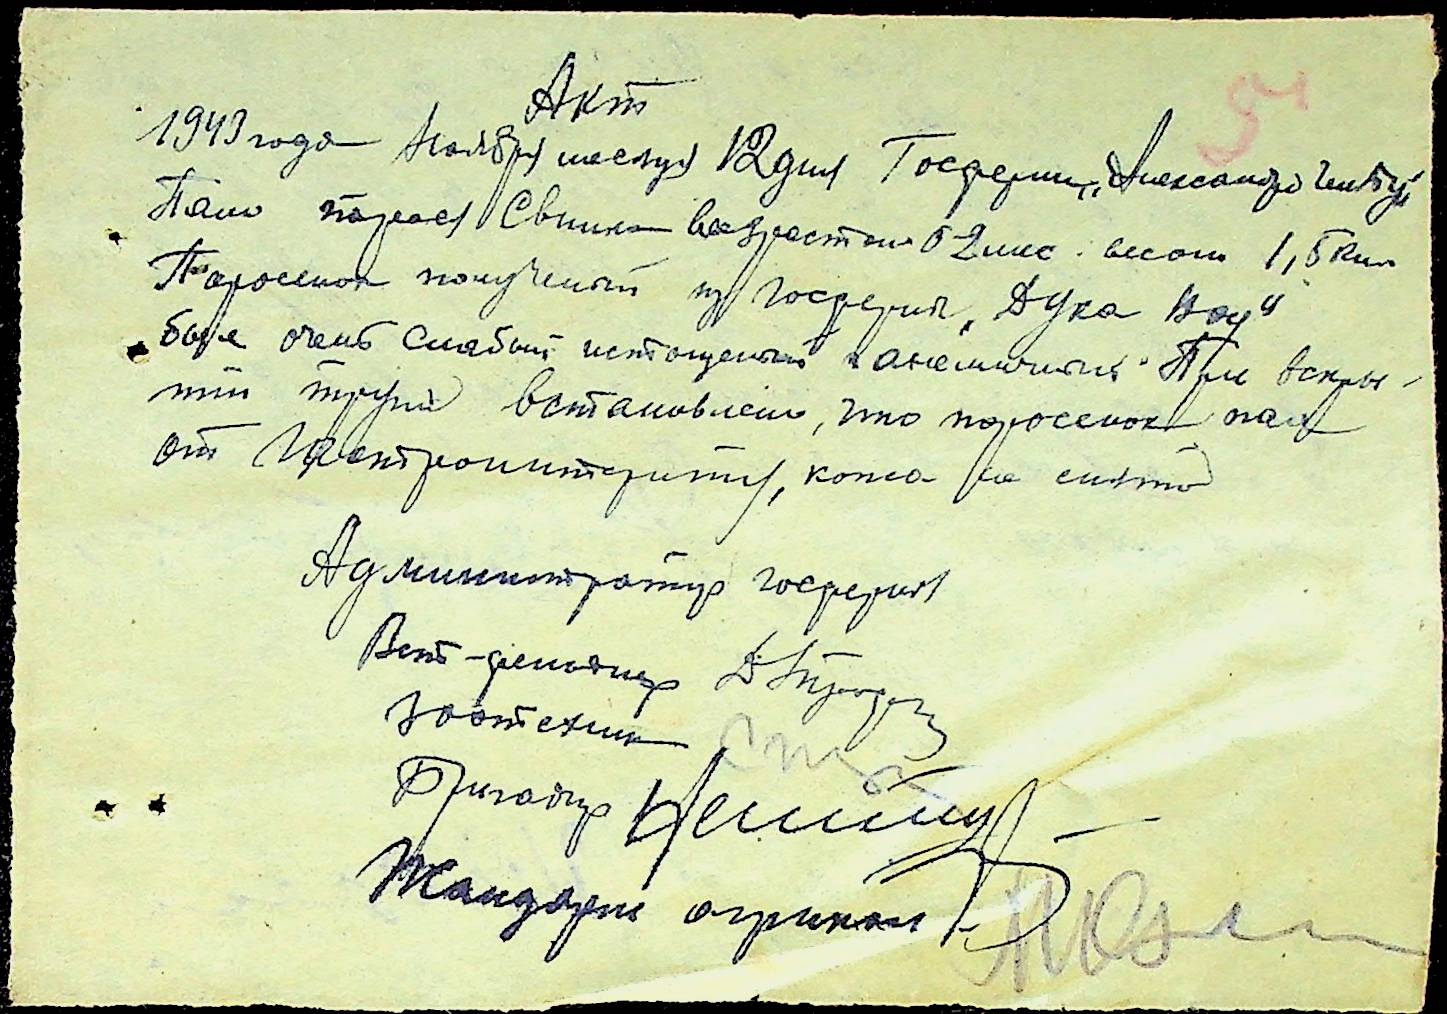 Акт
1943 года Ноября месяца 12 дня Госферми „Александро
Пало порося Свинка возрастом 2 мес. весом 1,5 кил
Поросенок полученый из госферми „Дука Воу"
был очень слабый истощеный и анемичный. При вскры-
тии трупа встановлено, что поросенок пал
от Гастроинтерита, кожа не снята
Администратор госферми
Вет-фельдшер
Зоотехник
Бригадир
Жандарм агрикол